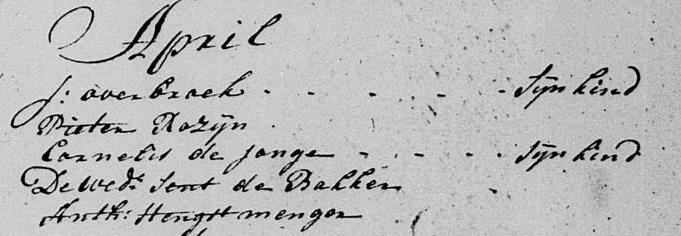 April
J: overbroek . . . . . Sijn kind
Pieter Rozijn
Cornelis de Jonge . . . . Sijn kind
De wedr. Sent de Bakker
Anth: Hengstmengor